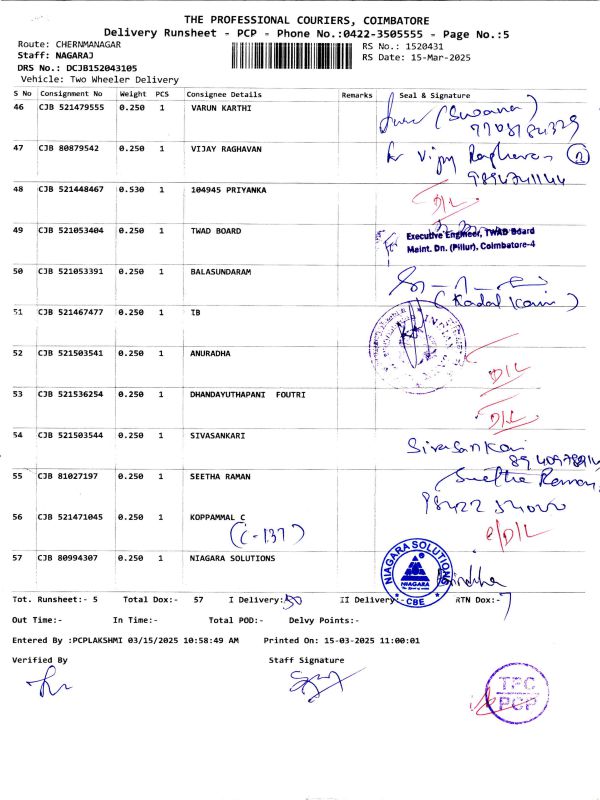 THE PROFESSIONAL COURIERS, COIMBATORE
Delivery Runsheet - PCP - Phone No.:0422-3505555 - Page No.:5
Route: CHERNMANAGAR
RS No.: 1520431
Staff: NAGARAJ
RS Date: 15-Mar-2025
DRS No.: DCJB152043105
Vehicle: Two Wheeler Delivery
S No Consignment No Weight PCS Consignee Details Remarks Seal & Signature
46 CJB 521479555 0.250 1 VARUN KARTHI
(Suvana)
47 CJB 80879542 0.250 1 VIJAY RAGHAVAN
Vijay Raghavan 2
48 CJB 521448467 0.530 1 104945 PRIYANKA
D/L
49 CJB 521053404 0.250 1 TWAD BOARD
Executive Engineer, TWAD Board
Maint. Dn. (Pillur), Coimbatore-4
50 CJB 521053391 0.250 1 BALASUNDARAM
51 CJB 521467477 0.250 1 IB
52 CJB 521503541 0.250 1 ANURADHA
D/L
53 CJB 521536254 0.250 1 DHANDAYUTHAPANI FOUTRI
D/L
54 CJB 521503544 0.250 1 SIVASANKARI
Sivasankari
55 CJB 81027197 0.250 1 SEETHA RAMAN
Seetha Raman
56 CJB 521471045 0.250 1 KOPPAMMAL C
(C-137)
D/L
57 CJB 80994307 0.250 1 NIAGARA SOLUTIONS
NIAGARA SOLUTIONS
NIAGARA
CBE
Tot. Runsheet:- 5 Total Dox:- 57 I Delivery:- 50 II Delivery:- RTN Dox:- 7
Out Time:- In Time:- Total POD:- Delvy Points:-
Entered By :PCPLAKSHMI 03/15/2025 10:58:49 AM Printed On: 15-03-2025 11:00:01
Verified By Staff Signature
TPC
PCP